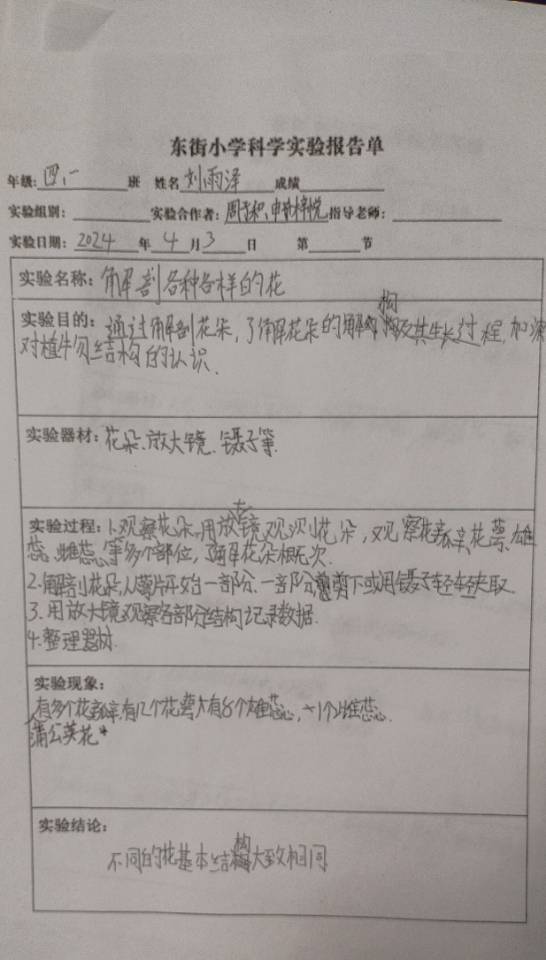 东街小学科学实验报告单
年级: 四、一 班 姓名 刘雨泽 成绩
实验组别: 实验合作者: 周子和、申 梓悦 指导老师:
实验日期: 2024 年 4 月 3 日 第 节
实验名称: 解剖各种各样的花
实验目的: 通过解剖花朵,了解花朵的解 构及其生长过程,加深
对植物结构的认识.
实验器材: 花朵、放大镜、镊子等.
实验过程: 1.观察花朵,用放大镜观测花朵,观察花瓣、花萼、雄
蕊、雌蕊、等多个部位,了解花朵
2.解剖花朵,从萼片开始一部分、一部分剪下或用镊子轻轻夹取.
3.用放大镜观察各部分结构记录数据.
4.整理器材.
实验现象:
有多个花瓣,有几个花萼大有8个雄蕊心,十1个雌蕊心.
蒲公英花*
实验结论:
不同的花基本结构大致相同